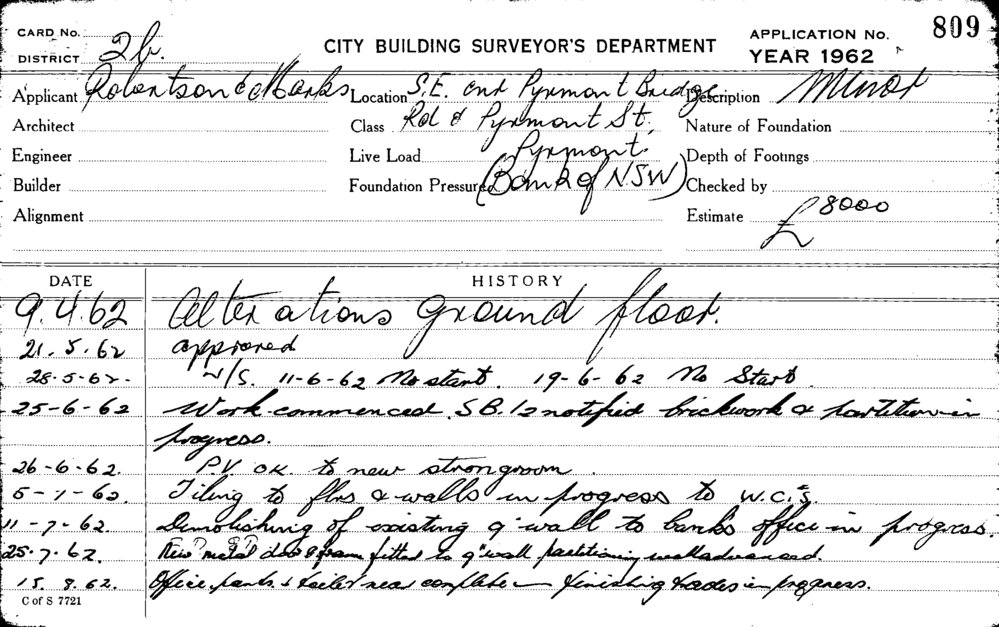 CARD No.
DISTRICT 2b.
CITY BUILDING SURVEYOR'S DEPARTMENT
APPLICATION No. 809
YEAR 1962
Applicant Robertson & Marks Location S.E. cnr Pyrmont Bridge Description Minor
Architect Class Rd & Pyrmont St, Nature of Foundation
Engineer Live Load Pyrmont. Depth of Footings
Builder Foundation Pressure (Bank of NSW) Checked by
Alignment Estimate £8000
DATE HISTORY
9.4.62 Alterations ground floor.
21.5.62 approved
28-5-62. N/S. 11-6-62 No start. 19-6-62 No Start.
25-6-62 Work commenced. S.B.12 notified brickwork & partition in
progress.
26-6-62. P.V. OK. to new strongroom.
5-7-62. Tiling to flrs & walls in progress to W.C's.
11-7-62. Demolishing of existing 9" wall to banks office in progress.
25.7.62. New metal door & frame fitted to 9" wall partitioning well advanced.
15.8.62. Office, & toilet near complete finishing trades in progress.
C of S 7721